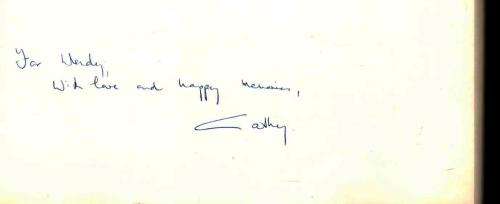 For Wendy,
With love and happy memories,
Cathy.